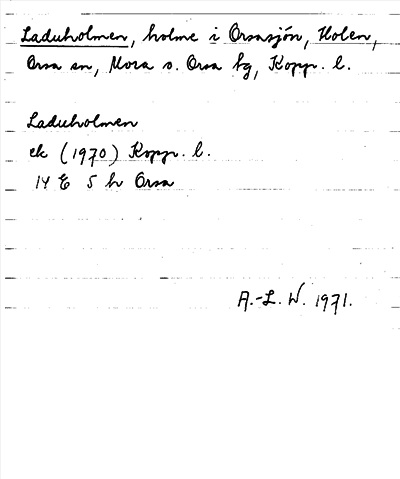 Laduholmen, holme i Orsasjön, Holen,
Orsa sn, Mora o. Orsa tg, Kopp. l.
Laduholmen
ek (1970) Kopp. l.
14 E 5 h Orsa
A.-L. W. 1971.